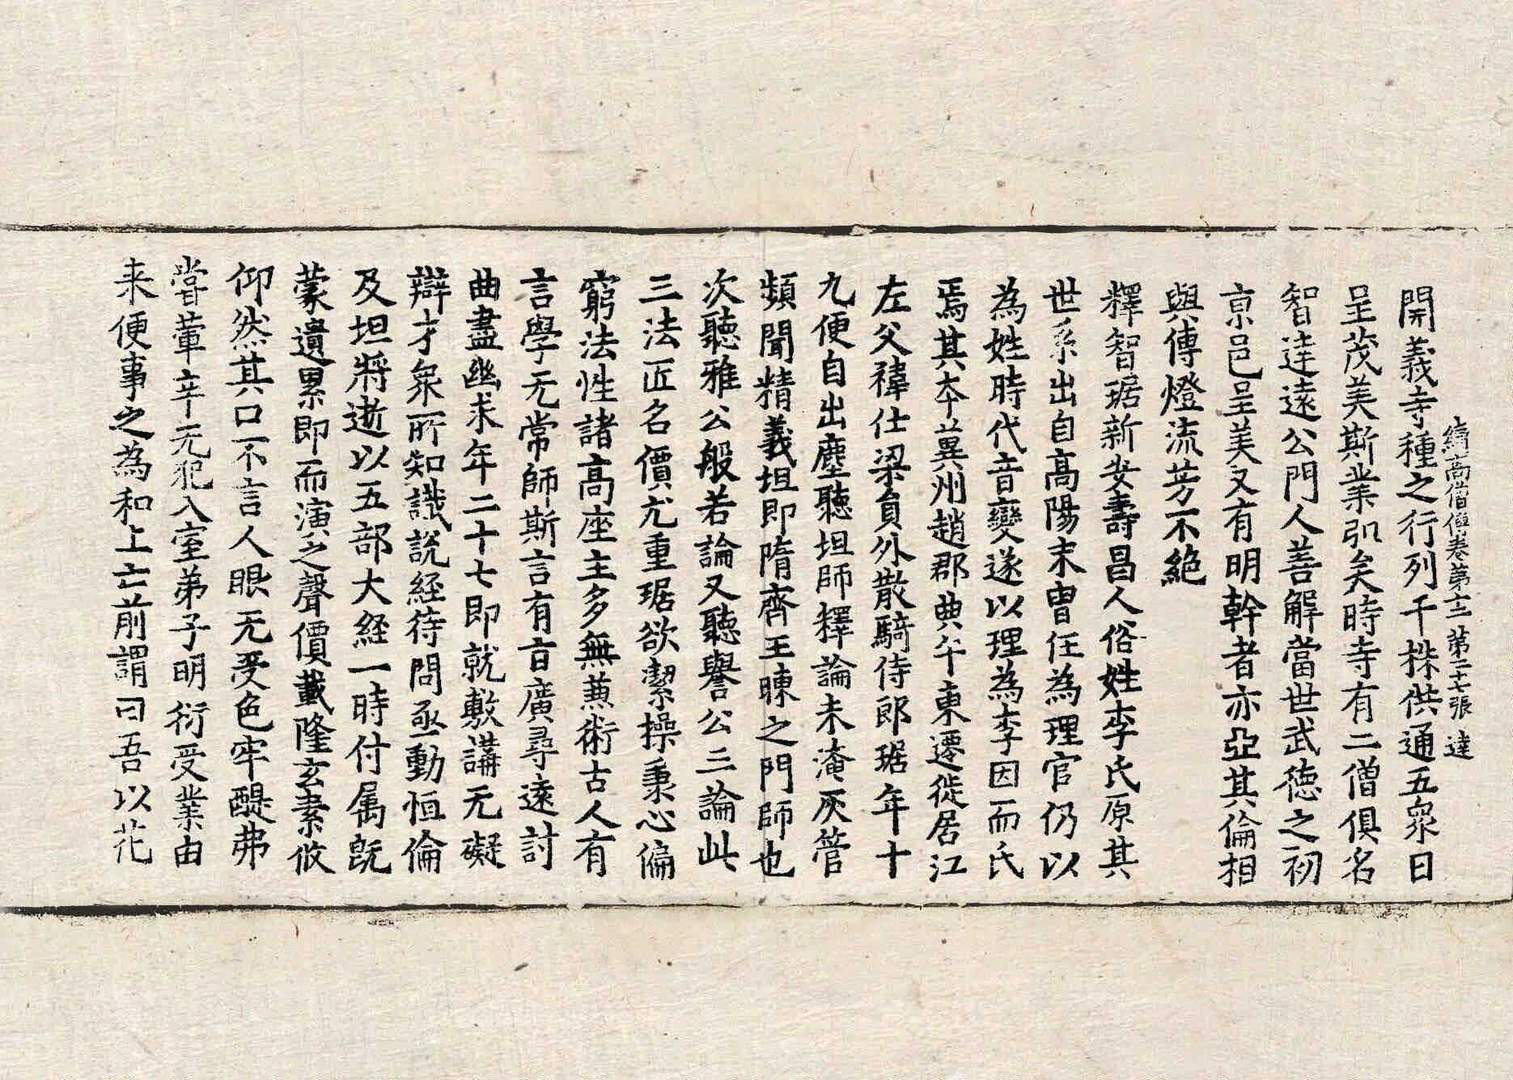 續高僧傳卷第十二 第二十七張 達
開義寺種之行列千株供通五衆日
呈茂美斯業弘矣時寺有二僧俱名
智達遠公門人善解當世武德之初
京邑呈美又有明幹者亦亞其倫相
與傳燈流芳不絕
釋智琚新安壽昌人俗姓李氏原其
世系出自高陽末胄任為理官仍以
為姓時代音變遂以理為李因而氏
焉其本冀州趙郡典午東遷徙居江
左父禕仕梁員外散騎侍郎琚年十
九便自出塵聽坦師釋論未淹灰管
頻聞精義坦即隋齊王暕之門師也
次聽雅公般若論又聽譽公三論此
三法匠名價尤重琚欲潔操秉心偏
窮法性諸高座主多無兼術古人有
言學无常師斯言有旨廣尋遠討
曲盡幽求年二十七即就敷講无礙
辯才衆所知識說経待問亟動恒倫
及坦將逝以五部大経一時付属旣
蒙遺累即而演之聲價載隆玄素攸
仰然其口不言人眼无受色牢醍弗
嘗葷辛无犯入室弟子明衍受業由
来便事之為和上亡前謂曰吾以花